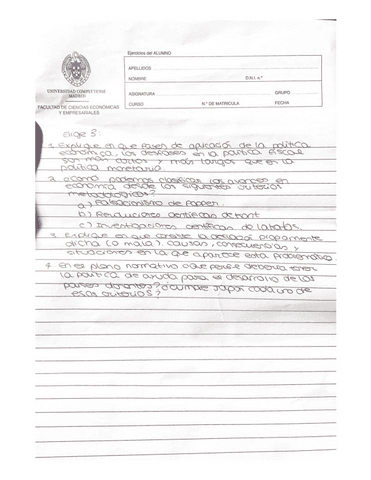 Ejercicios del ALUMNO
APELLIDOS
NOMBRE D.N.I. n.º
ASIGNATURA GRUPO
CURSO N.º DE MATRICULA FECHA
UNIVERSIDAD COMPLUTENSE
MADRID
FACULTAD DE CIENCIAS ECONÓMICAS
Y EMPRESARIALES
Elige 3:
1. Explique en que fases de aplicación de la política
económica, los desfases en la política fiscal
son más cortos y más largos que en la
política monetaria.
2. ¿Cómo podemos clasificar los avances en
economía desde los siguientes criterios
metodológicos?
a) Falsacionismo de Popper
b) Revoluciones científicas de
c) Investigaciones científicas de Lakatos.
3. Explique en que consiste la deflación propiamente
dicha (o mala), causas, consecuencias y
situaciones en la que aparece esta problemática
4. En el plano normativo ¿que perfil debería tener
la política de ayuda para el desarrollo de los
países donantes? ¿Cumple Japón cada uno de
esos criterios?